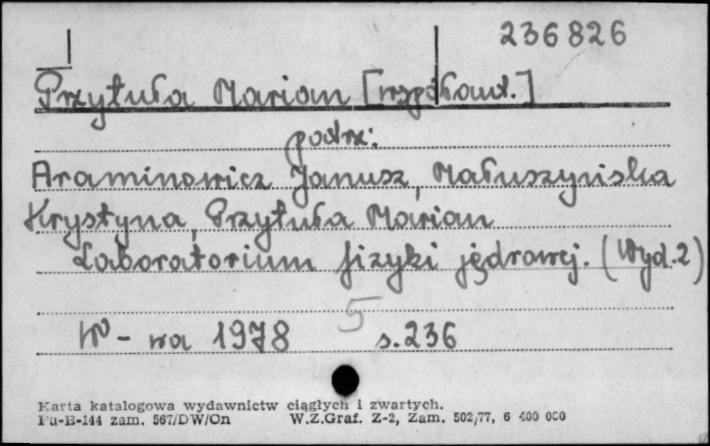 236826
Przytuła Marian [współaut.]
podrz:
Araminowicz Janusz, Małuszyńska
Krystyna, Przytuła Marian
Laboratorium fizyki jądrowej. (Wyd. 2)
5
W-wa 1978 s. 236
Karta katalogowa wydawnictw ciągłych i zwartych.
Pu-B-144 zam. 567/DW/On W.Z.Graf. Z-2, Zam. 502/77, 6 400 000